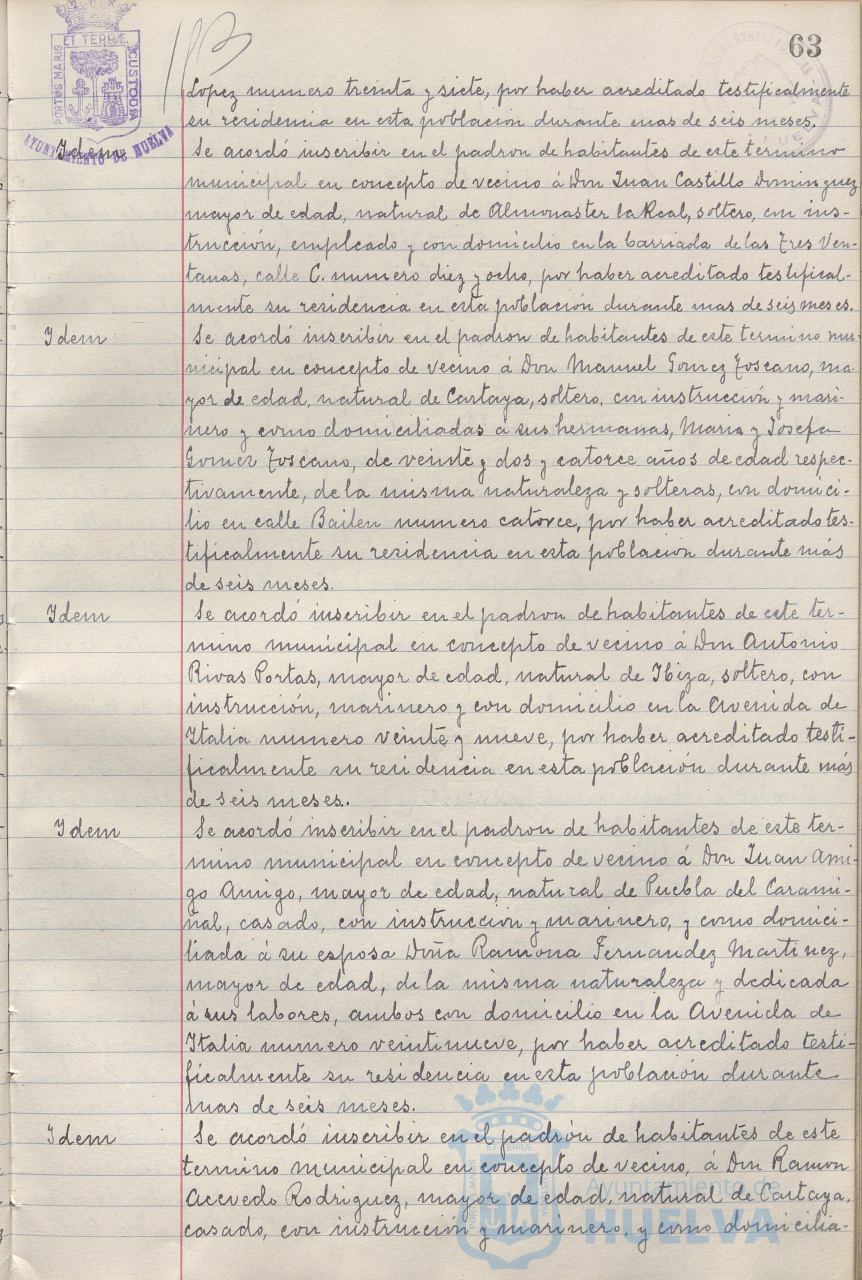 63
PORTUS MARIS ET TERRÆ CUSTODIA
AYUNTAMIENTO DE HUELVA
Lopez numero treinta y siete, por haber acreditado testificalmente
su residencia en esta población durante mas de seis meses.
Idem
Se acordó inscribir en el padron de habitantes de este termino
municipal en concepto de vecino á Don Juan Castillo Dominguez
mayor de edad, natural de Almonaster la Real, soltero, con ins-
trucción, empleado y con domicilio en la barriada de las Tres Ven-
tanas, calle C. numero diez y ocho, por haber acreditado testifical-
mente su residencia en esta población durante mas de seis meses.
Idem
Se acordó inscribir en el padron de habitantes de este termino mu-
nicipal en concepto de vecino á Don Manuel Gomez Toscano, ma-
yor de edad, natural de Cartaya, soltero, con instrucción y mari-
nero y como domiciliadas á sus hermanas, Maria y Josefa
Gomez Toscano, de veinte y dos y catorce años de edad respec-
tivamente, de la misma naturaleza y solteras, con domici-
lio en calle Bailen numero catorce, por haber acreditado tes-
tificalmente su residencia en esta población durante más
de seis meses.
Idem
Se acordó inscribir en el padron de habitantes de este ter-
mino municipal en concepto de vecino á Don Antonio
Rivas Portas, mayor de edad, natural de Ibiza, soltero, con
instrucción, marinero y con domicilio en la Avenida de
Italia numero veinte y nueve, por haber acreditado testi-
ficalmente su residencia en esta población durante más
de seis meses.
Idem
Se acordó inscribir en el padron de habitantes de este ter-
mino municipal en concepto de vecino á Don Juan Ami-
go Amigo, mayor de edad, natural de Puebla del Carami-
ñal, casado, con instrucción y marinero, y como domici-
liada á su esposa Doña Ramona Fernandez Martinez,
mayor de edad, de la misma naturaleza y dedicada
á sus labores, ambos con domicilio en la Avenida de
Italia numero veintinueve, por haber acreditado testi-
ficalmente su residencia en esta población durante
mas de seis meses.
Idem
Se acordó inscribir en el padrón de habitantes de este
termino municipal en concepto de vecino, á Don Ramon
Acevedo Rodriguez, mayor de edad, natural de Cartaya,
casado, con instrucción y marinero, y como domicilia-
Ayuntamiento de
HUELVA